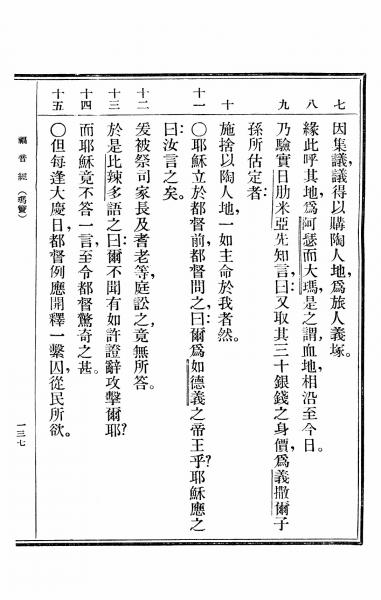 七 因集議議得以購陶人地,爲旅人義塚。
八 緣此呼其地,爲阿瑟而大瑪是之謂,血地,相沿至今日。
九 乃驗實日肋米亞先知言:曰又取其三十銀錢之身價,爲義撒爾子
孫所估定者;
十 施捨以陶人地,一如主命於我者然。
十一 〇耶穌立於都督前,都督問之:曰爾爲如德義之帝王乎?耶穌應之
曰:汝言之矣。
十二 爰被祭司家長及耆老等,庭訟之,竟無所答。
十三 於是比辣多語之曰:爾不聞有如許證辭攻擊爾耶?
十四 而耶穌竟不答一言,至令都督驚奇之甚。
十五 〇但每逢大慶日,都督例應開釋一繫囚,從民所欲。
福音經(瑪竇)
一三七